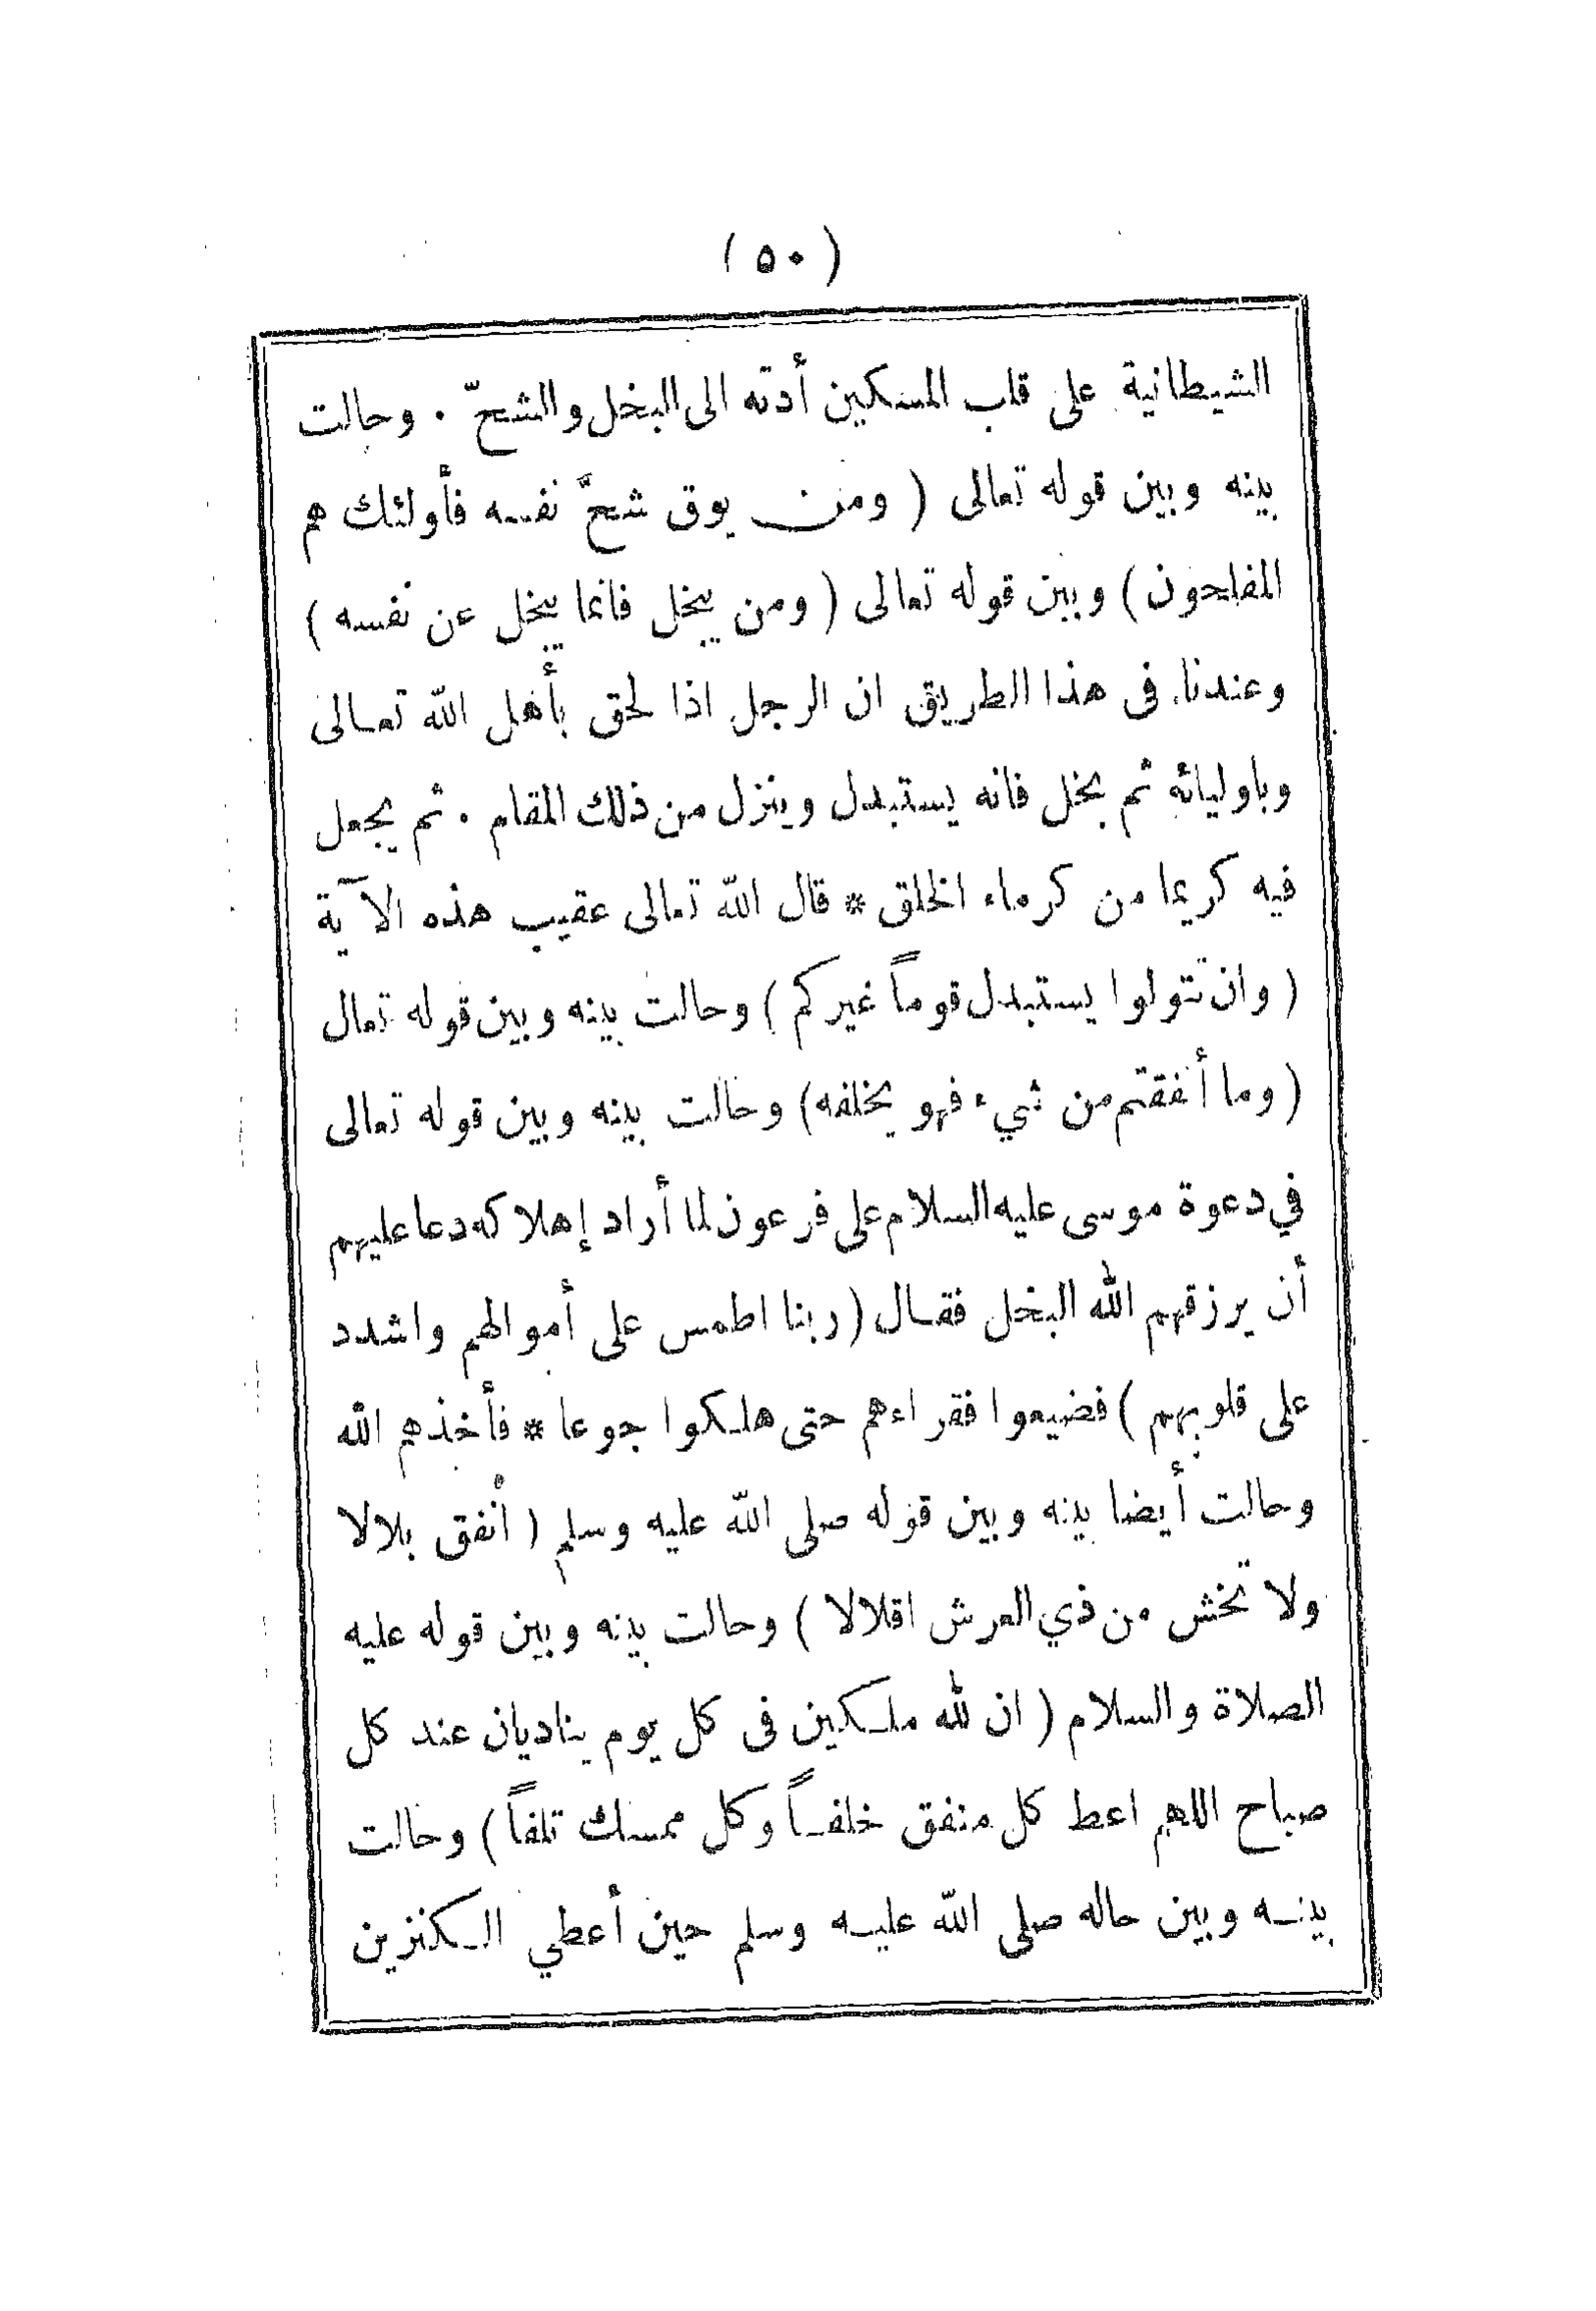 ( ٥٠ )
الشيطانية على قلب المسكين أدته الى البخل والشحّ . وحالت
بينه وبين قوله تعالى ( ومن يوق شحّ نفسه فأولئك هم
المفلحون ) وبين قوله تعالى ( ومن يبخل فانما يبخل عن نفسه )
وعندنا في هذا الطريق ان الرجل اذا لحق بأهل الله تعالى
وباوليائه ثم بخل فانه يستبدل وينزل من ذلك المقام . ثم يجعل
فيه كريما من كرماء الخلق * قال الله تعالى عقيب هذه الآية
( وان تتولوا يستبدل قوماً غيركم ) وحالت بينه وبين قوله تعال
( وما أنفقتم من شيء فهو يخلفه ) وحالت بينه وبين قوله تعالى
في دعوة موسى عليه السلام على فرعون لما أراد إهلاكه دعا عليهم
أن يرزقهم الله البخل فقال ( ربنا اطمس على أموالهم واشدد
على قلوبهم ) فضيعوا فقراءهم حتى هلكوا جوعا * فأخذهم الله
وحالت أيضا بينه وبين قوله صلى الله عليه وسلم ( أنفق بلالا
ولا تخش من ذي العرش اقلالا ) وحالت بينه وبين قوله عليه
الصلاة والسلام ( ان لله ملكين فى كل يوم يناديان عند كل
صباح اللهم اعط كل منفق خلفاً وكل ممسك تلفاً ) وحالت
بينه وبين حاله صلى الله عليه وسلم حين أعطي الكنزين